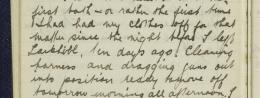 first bath – or rather the first time
I had had my clothes off for that
matter since the night before I left
Larkhill, 10 days ago! Cleaning
harness and dragging guns out
into position ready to move off
tomorrow morning all afternoon. I